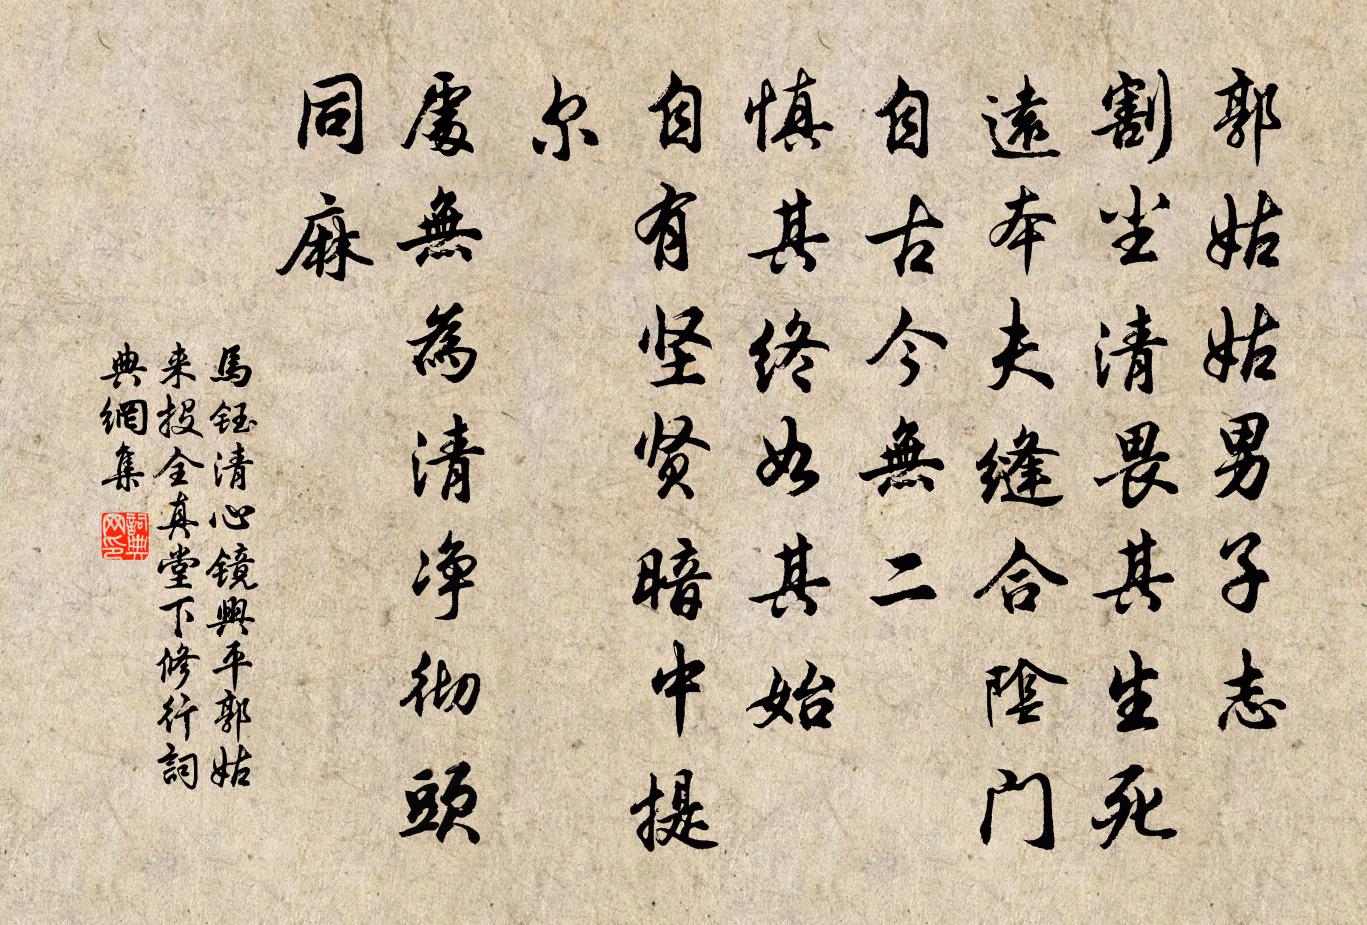 郭姑姑男子志
割尘清畏其生死
遠本夫缝合陰门
自古今無二
慎其终如其始
自有坚贤暗中提
尔
處無為清净彻頭
同麻
馬钰清心镜興平郭姑
来投全真堂下修行詞
典網集
詞典
网印